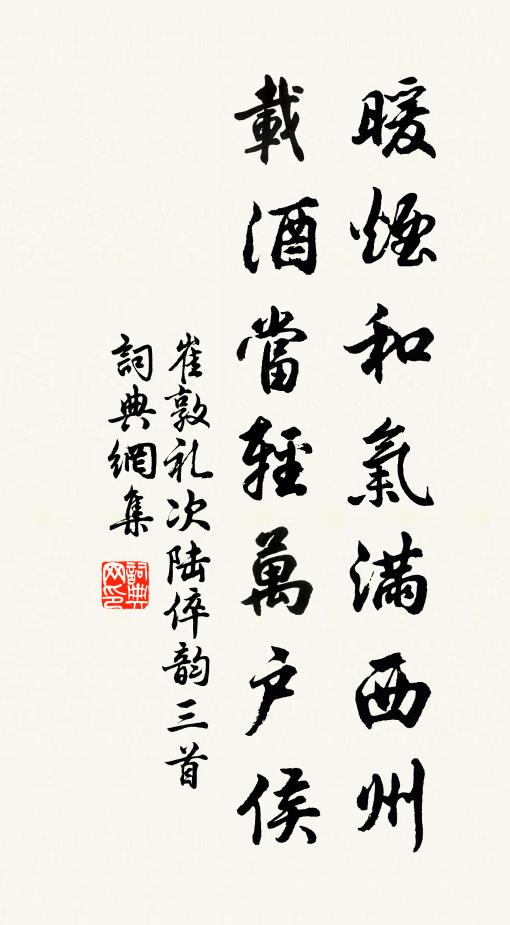 暖煙和氣滿西州
載酒當輕萬户侯
崔敦礼次陆倅韵三首
詞典網集
詞典網印